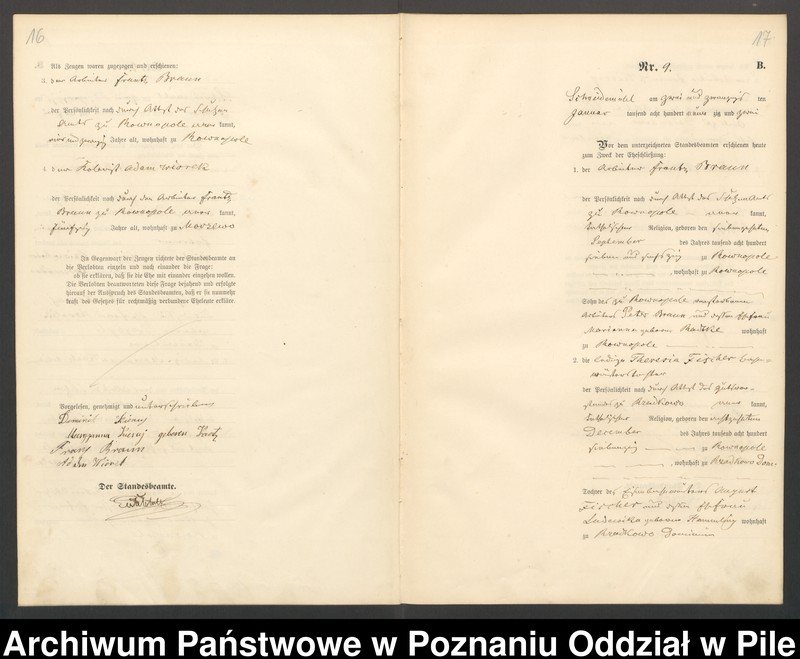 16
Als Zeugen waren zugezogen und erschienen:
3. der Arbeiter Frantz Braun
der Persönlichkeit nach durch Attest des Schulzen
Amts zu Rownopole kannt,
Jahre alt, wohnhaft zu Rownopole
4. der Kolonist Adam Wiorek
der Persönlichkeit nach durch den Arbeiter Frantz
Braun zu Rownopole kannt,
fünfzig Jahre alt, wohnhaft zu Morzewo
In Gegenwart der Zeugen richtete der Standesbeamte an
die Verlobten einzeln und nach einander die Frage:
ob sie erklären, daß sie die Ehe mit einander eingehen wollen.
Die Verlobten beantworteten diese Frage bejahend und erfolgte
hierauf der Ausspruch des Standesbeamten, daß er sie nunmehr
kraft des Gesetzes für rechtmäßig verbundene Eheleute erkläre.
Vorgelesen, genehmigt und unterschrieben
Dominik
Maryanna geboren
Franz Braun
Adam Wiorek
Der Standesbeamte.
17
Nr. 9. B.
Schneidemühl am zwei und zwanzigsten
Januar tausend acht hundert neun zig und zwei
Vor dem unterzeichneten Standesbeamten erschienen heute
zum Zweck der Eheschließung:
1. der Arbeiter Frantz Braun
der Persönlichkeit nach durch Attest des Schulzen Amts
zu Rownopole kannt,
katholischer Religion, geboren den siebenzehnten
September des Jahres tausend acht hundert
sieben und sechszig zu Rownopole
, wohnhaft zu Rownopole
Sohn des zu Rownopole verstorbenen
Arbeiters Peter Braun und dessen Ehefrau
Marianna geborene Radtke wohnhaft
zu Rownopole
2. die ledige Theresia Fischer
der Persönlichkeit nach durch Attest des Gutsvor-
stands zu Brodkowo kannt,
katholischer Religion, geboren den
December des Jahres tausend acht hundert
siebenzig zu Rownopole
, wohnhaft zu Brodkowo Dom:
Tochter des August
Fischer und dessen Ehefrau
Ludowika geborene wohnhaft
zu Brodkowo Dominium
Archiwum Państwowe w Poznaniu Oddział w Pile